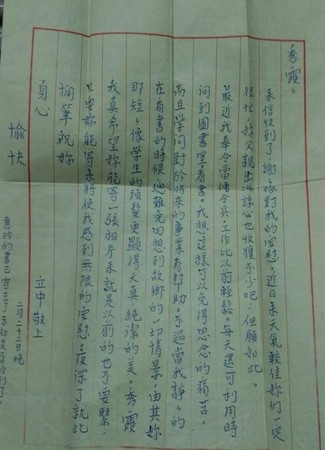 秀霞、
來信收到了，謝謝妳對我的安慰，近日來天氣較佳妳們一定
很忙，好父親出海諒心也收獲不少吧，但願如此。
最近我奉令當傳令兵工作比以前輕鬆，每天還可利用時
間到圖書室看書。我想這樣可以免得思念的痛苦。
而且學問對於將來的事業有幫助。不過當我靜靜的
在看書的時候總難免回想到故鄉的一切情景，由其妳
那短短像學生的頭髮更顯得天真純潔的美。秀霞
我真希望妳能寄一張相片來就是以前的也不要緊，
只要妳能寄來將使我感到無限的安慰。夜深了就此
擱筆祝妳
身心
愉快
立中 敬上
二月二十二日晚